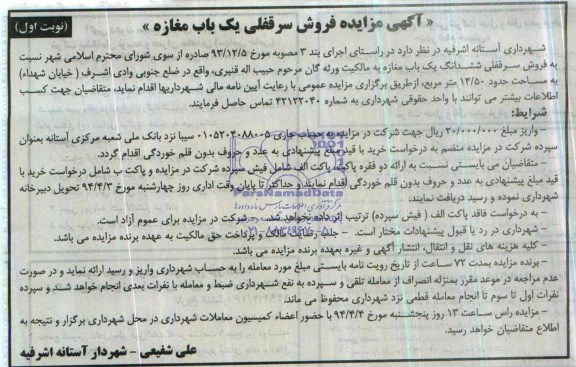 « آگهی مزایده فروش سرقفلی یک باب مغازه » (نوبت اول)
شهرداری آستانه اشرفیه در نظر دارد در راستای اجرای بند ۳ مصوبه مورخ ۹۳/۱۲/۵ صادره از سوی شورای محترم اسلامی شهر نسبت
به فروش سرقفلی ششدانگ یک باب مغازه به مالکیت ورثه گان مرحوم حبیب اله قنبری، واقع در ضلع جنوبی وادی اشرف ( خیابان شهداء)
به مساحت حدود ۱۴/۵۰ متر مربع، ازطریق برگزاری مزایده عمومی با رعایت آیین نامه مالی شهرداریها اقدام نماید، متقاضیان جهت کسب
اطلاعات بیشتر می توانند با واحد حقوقی شهرداری به شماره ۴۲۱۲۲۰۴۰ تماس حاصل فرمایند.
شرایط:
– واریز مبلغ ۲۰/۰۰۰/۰۰۰ ریال جهت شرکت در مزایده به حساب جاری ۰۱۰۵۲۰۴۰۸۸۰۰۵ سیبا نزد بانک ملی شعبه مرکزی آستانه بعنوان
سپرده شرکت در مزایده منضم به درخواست خرید با قید مبلغ پیشنهادی به عدد و حروف بدون قلم خوردگی اقدام گردد.
– متقاضیان می بایستی نسبت به ارائه دو فقره پاکت، پاکت الف شامل فیش سپرده شرکت در مزایده و پاکت ب شامل درخواست خرید با
قید مبلغ پیشنهادی به عدد و حروف بدون قلم خوردگی اقدام نمایند و حداکثر تا پایان وقت اداری روز چهارشنبه مورخ ۹۴/۴/۳ تحویل دبیرخانه
شهرداری نموده و رسید دریافت نمایند.
– به درخواست فاقد پاکت الف ( فیش سپرده) ترتیب اثر داده نخواهد شد. – شرکت در مزایده برای عموم آزاد است.
– شهرداری در رد یا قبول پیشنهادات مختار است. – جلب رضایت مالک و پرداخت حق مالکیت به عهده برنده مزایده می باشد.
– کلیه هزینه های نقل و انتقال، انتشار آگهی و غیره بعهده برنده مزایده می باشد.
– برنده مزایده بمدت ۷۲ ساعت از تاریخ رویت نامه بایستی مبلغ مورد معامله را به حساب شهرداری واریز و رسید ارائه نماید و در صورت
عدم مراجعه در موعد مقرر بمنزله انصراف از معامله تلقی و سپرده به نفع شهرداری ضبط و معامله با نفرات بعدی انجام خواهد شد و سپرده
نفرات اول تا سوم تا انجام معامله قطعی نزد شهرداری محفوظ می ماند.
– مزایده راس ساعت ۱۳ روز پنجشنبه مورخ ۹۴/۴/۴ با حضور اعضاء کمیسیون معاملات شهرداری در محل شهرداری برگزار و نتیجه به
اطلاع متقاضیان خواهد رسید.
علی شفیعی – شهردار آستانه اشرفیه
ParsNamadData